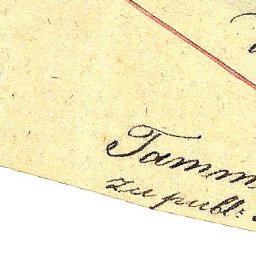 Tamm
zu publ: